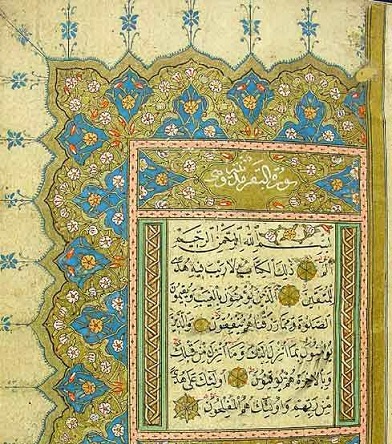 سورة البقرة مدنية وهي
بسم الله الرحمن الرحيم
الٓمٓ ذٰلِكَ الْكِتَابُ لَا رَيْبَ فِيهِ هُدًى
لِلْمُتَّقِينَ الَّذِينَ يُؤْمِنُونَ بِالْغَيْبِ وَيُقِيمُونَ
الصَّلٰوةَ وَمِمَّا رَزَقْنَاهُمْ يُنْفِقُونَ وَالَّذِينَ
يُؤْمِنُونَ بِمَا أُنْزِلَ إِلَيْكَ وَمَا أُنْزِلَ مِنْ قَبْلِكَ
وَبِالْآخِرَةِ هُمْ يُوقِنُونَ أُولٰئِكَ عَلٰى هُدًى
مِنْ رَبِّهِمْ وَأُولٰئِكَ هُمُ الْمُفْلِحُونَ